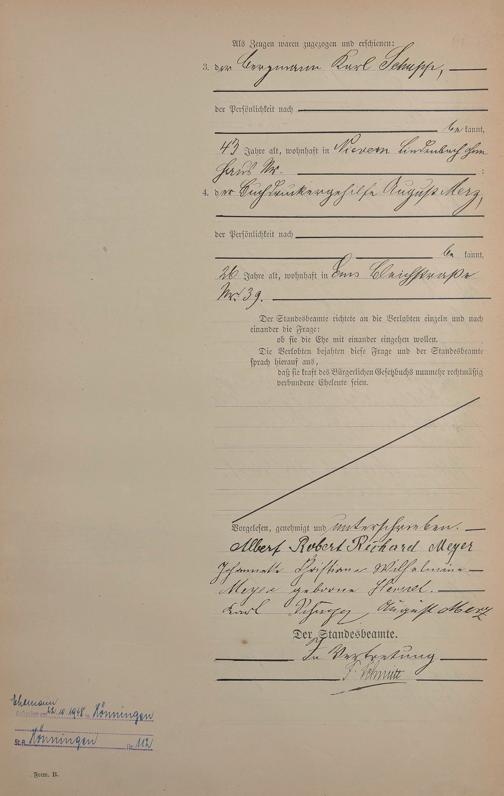 Als Zeugen waren zugezogen und erschienen:
3. der Bergmann Karl Schupp,
der Persönlichkeit nach
be kannt,
43 Jahre alt, wohnhaft in Nievern Lindenbach
Haus Nr. :
4. der Buchdruckergehilfe August Merz,
der Persönlichkeit nach
be kannt,
26 Jahre alt, wohnhaft in Ems Bleichstraße
Nr. 39.
Der Standesbeamte richtete an die Verlobten einzeln und nach
einander die Frage:
ob sie die Ehe mit einander eingehen wollen.
Die Verlobten bejahten diese Frage und der Standesbeamte
sprach hierauf aus,
daß sie kraft des Bürgerlichen Gesetzbuchs nunmehr rechtmäßig
verbundene Eheleute seien.
Vorgelesen, genehmigt und unterschrieben.
Albert Robert Richard Meyer
Johannette Christiane Wilhelmine
Meyer geborene
Karl Schupp August Merz
Der Standesbeamte.
In Vertretung
Schmitt
Ehemann
22.10.1948 in Hönningen
St.A. Hönningen Nr. 112
Form. B.